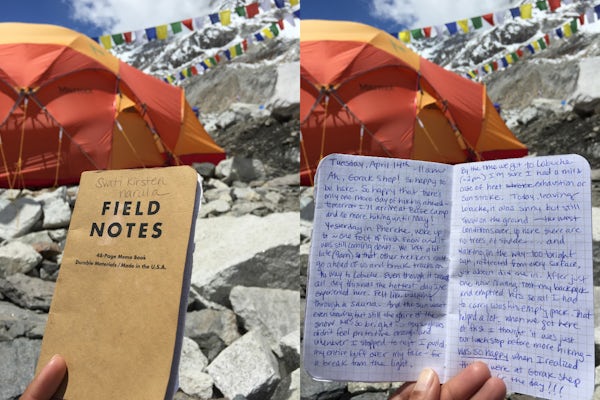 Swati Kirsten
Narula
FIELD
NOTES
48-Page Memo Book
Durable Materials / Made in the U.S.A.
Tuesday, April 14th 11am
Ah, Gorak Shep! So happy to
be here. So happy that there's
only one more day of hiking ahead—
tomorrow I'll arrive at Base Camp
and no more hiking until May
Yesterday in Pheriche, woke up
to one foot of fresh snow and it
was still coming down. We left
late (9am) so that other trekkers could
go ahead of us and break tracks on
the way to Lobuche. Even though it snowed
all day this was the hottest day I've
experienced here. Felt like walking
through a sauna. And the sun wasn't
even showing but still the glare of the
snow was so bright... my
didn't feel protective enough and
whenever I stopped to rest I pulled
my entire buff over my face - for
a break from the light.
By the time we got to Lobuche
(2pm) I'm sure I had a mild
case of heat exhaustion or
sun stroke. Today, leaving
Lobuche, it was sunny but still
snow on the ground — the worst
conditions ever, up here there are
no trees or shade ... and
walking in the way too bright
sun, reflected from every surface,
just about did me in. After just
one hour Ninang took my backpack
and emptied his so all I had
to carry was his empty pack. That
helped a lot. When we got here
at 10:30 I thought it was just
our lunch stop before more hiking —
was so happy when I realized
were at Gorak Shep
the day!!!